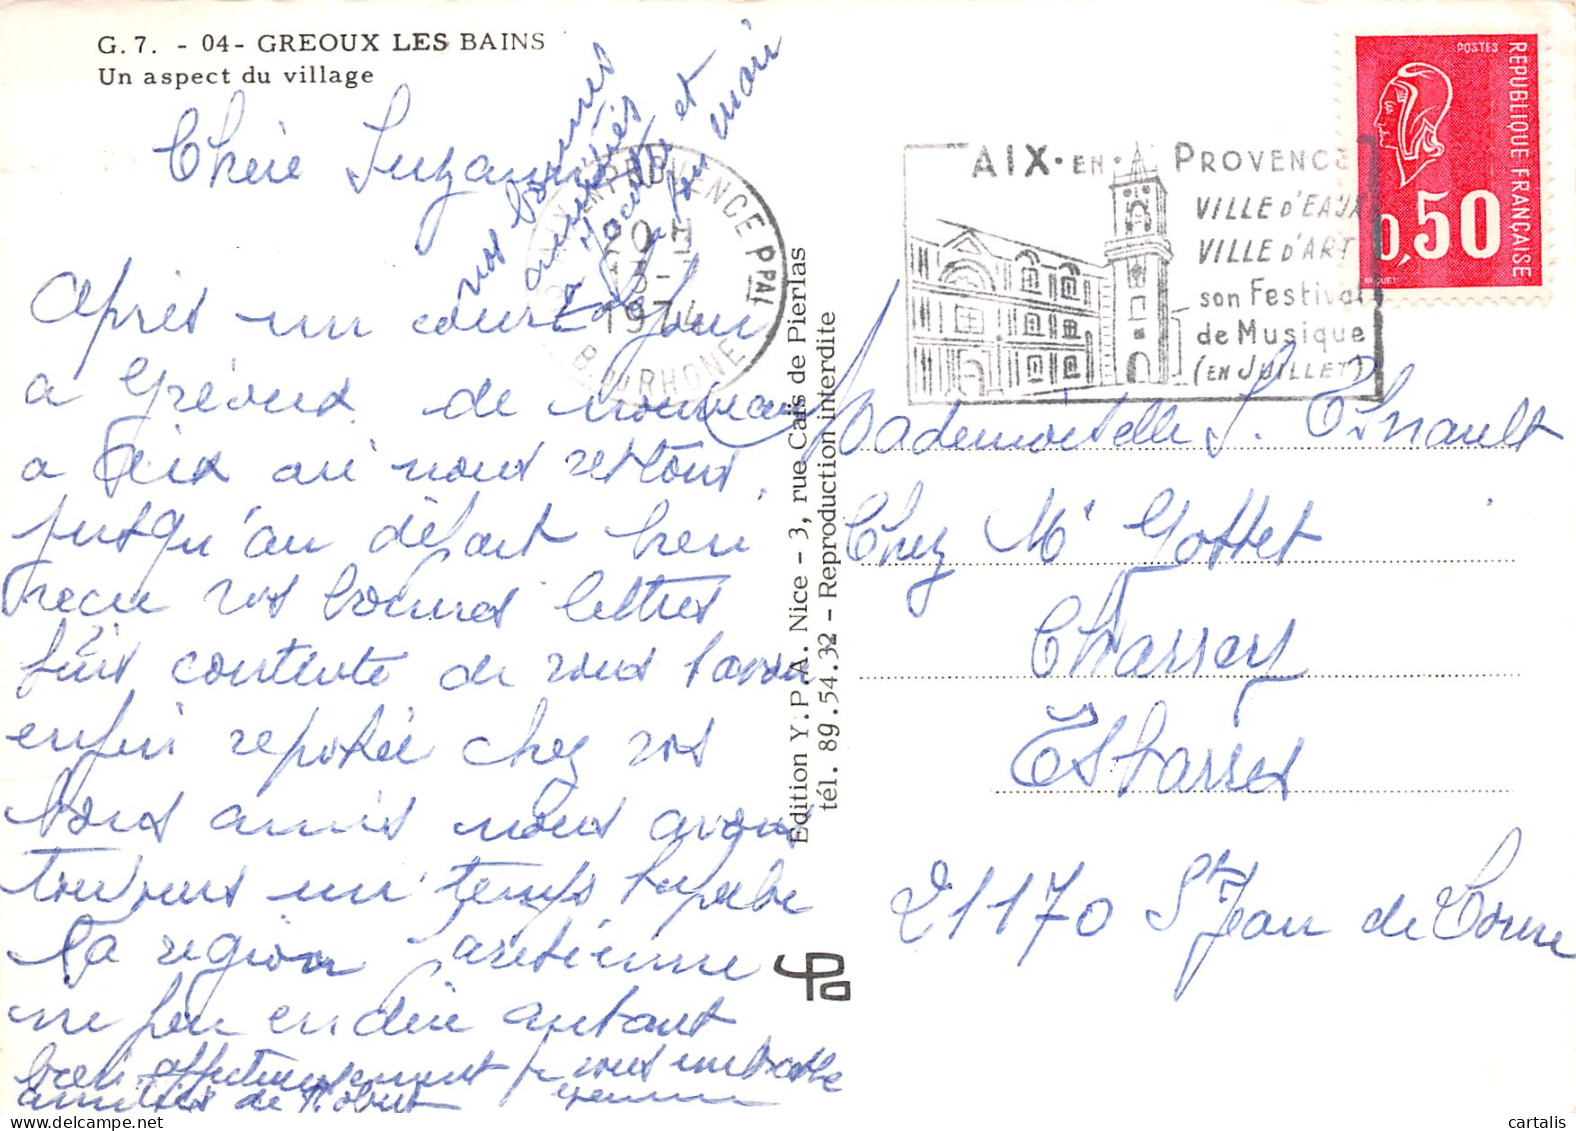 G. 7. - 04 - GREOUX LES BAINS
Un aspect du village
Chère Suzanne
Après un court séjour
a Gréoux de nouveau
a Aix où nous restons
jusqu'au départ bien
recu vos bonnes lettres
suis contente de vous savoir
enfin reposée chez vos
bons amis nous avons
toujours un temps superbe
la région parisienne
ne peu en dire autant
bien affectueusement je vous embrasse
amitiés de Robert
nos bonnes
amitiés
à et
son mari
AIX EN PROVENCE PPAL
20 H
1974
B. DU RHONE
AIX-EN-PROVENCE
VILLE D'EAUX
VILLE D'ART
son Festival
de Musique
(EN JUILLET)
POSTES
REPUBLIQUE FRANÇAISE
0,50
Edition Y.P.A. Nice - 3, rue Caïs de Pierlas
tél. 89.54.32 - Reproduction interdite
Mademoiselle S.
Chez Mr Gottet
Charrey
Esbarres
21170 St Jean de Losne
cartalis